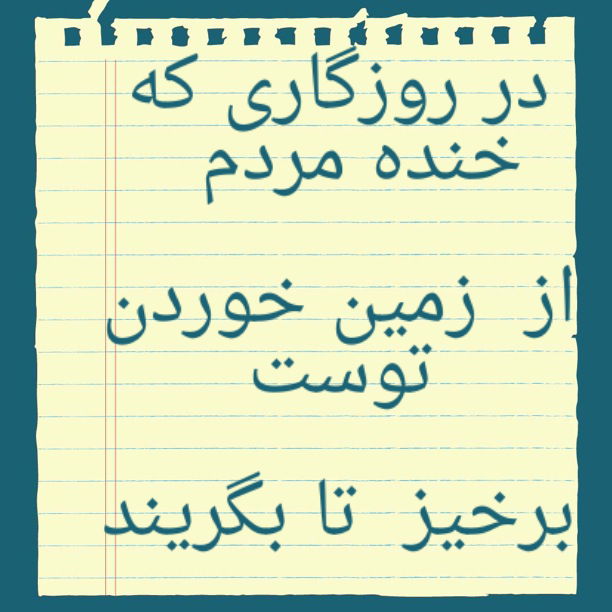 در روزگاری که
خنده مردم
از زمین خوردن
توست
برخیز تا بگریند